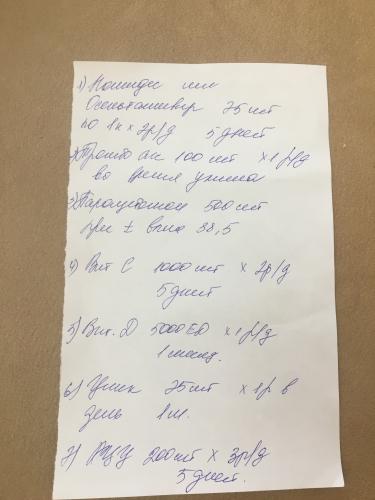 1) Номидес или
Осельтамивир 75 мг
по 1к x 2р/д 5 дней
2) 100 мг x 1 р/д
во время ужина
3) Парацетамол 500 мг
при t выше 38,5
4) Вит С 1000 мг x 2р/д
5 дней
5) Вит. Д 5000 ЕД x 1 р/д
1 месяц.
6) Цинк 25 мг x 1р в
день 1 м.
7) АЦЦ 200 мг x 3р/д
5 дней.